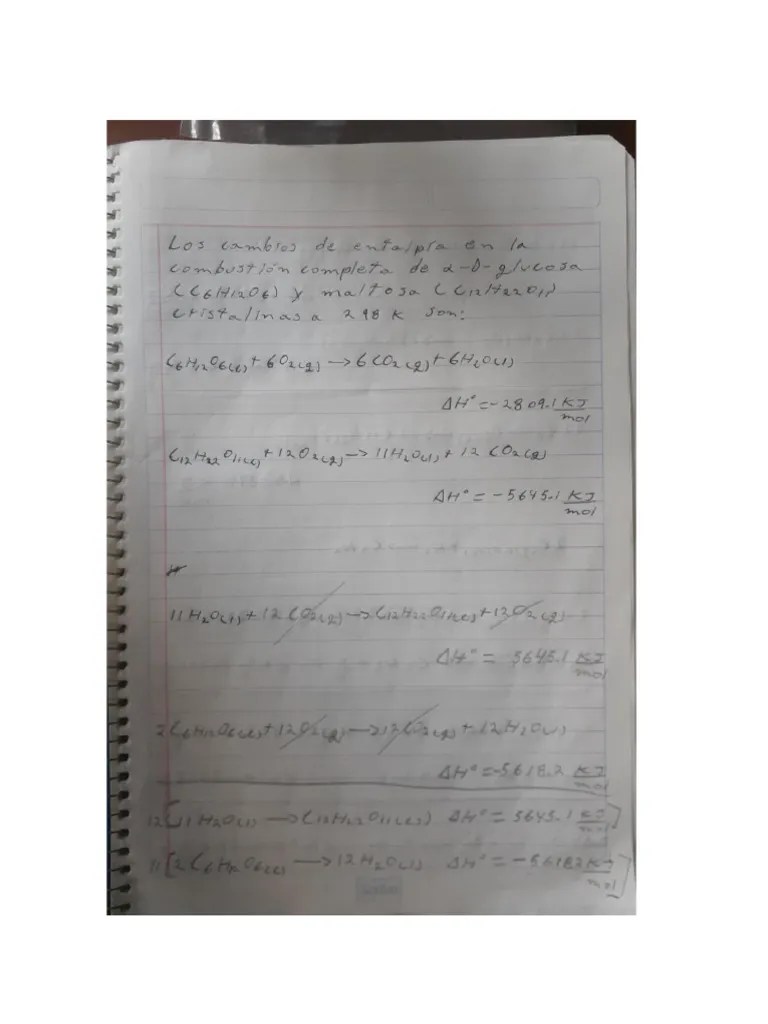 Los cambios de entalpía en la
combustión completa de α-D-glucosa
(C6H12O6) y maltosa (C12H22O11)
cristalinas a 298 K son:
C6H12O6(s)+6O2(g)→6CO2(g)+6H2O(l)
ΔH°=-2809.1 KJ/mol
C12H22O11(s)+12O2(g)→11H2O(l)+12CO2(g)
ΔH°=-5645.1 KJ/mol
11H2O(l)+12CO2(g)→C12H22O11(s)+12O2(g)
ΔH°= 5645.1 KJ/mol
2C6H12O6(s)+12O2(g)→12CO2(g)+12H2O(l)
ΔH°=-5618.2 KJ/mol
12[11H2O(l)→C12H22O11(s) ΔH°= 5645.1 KJ/mol]
11[2C6H12O6(s)→12H2O(l) ΔH°=-5618.2 KJ/mol]